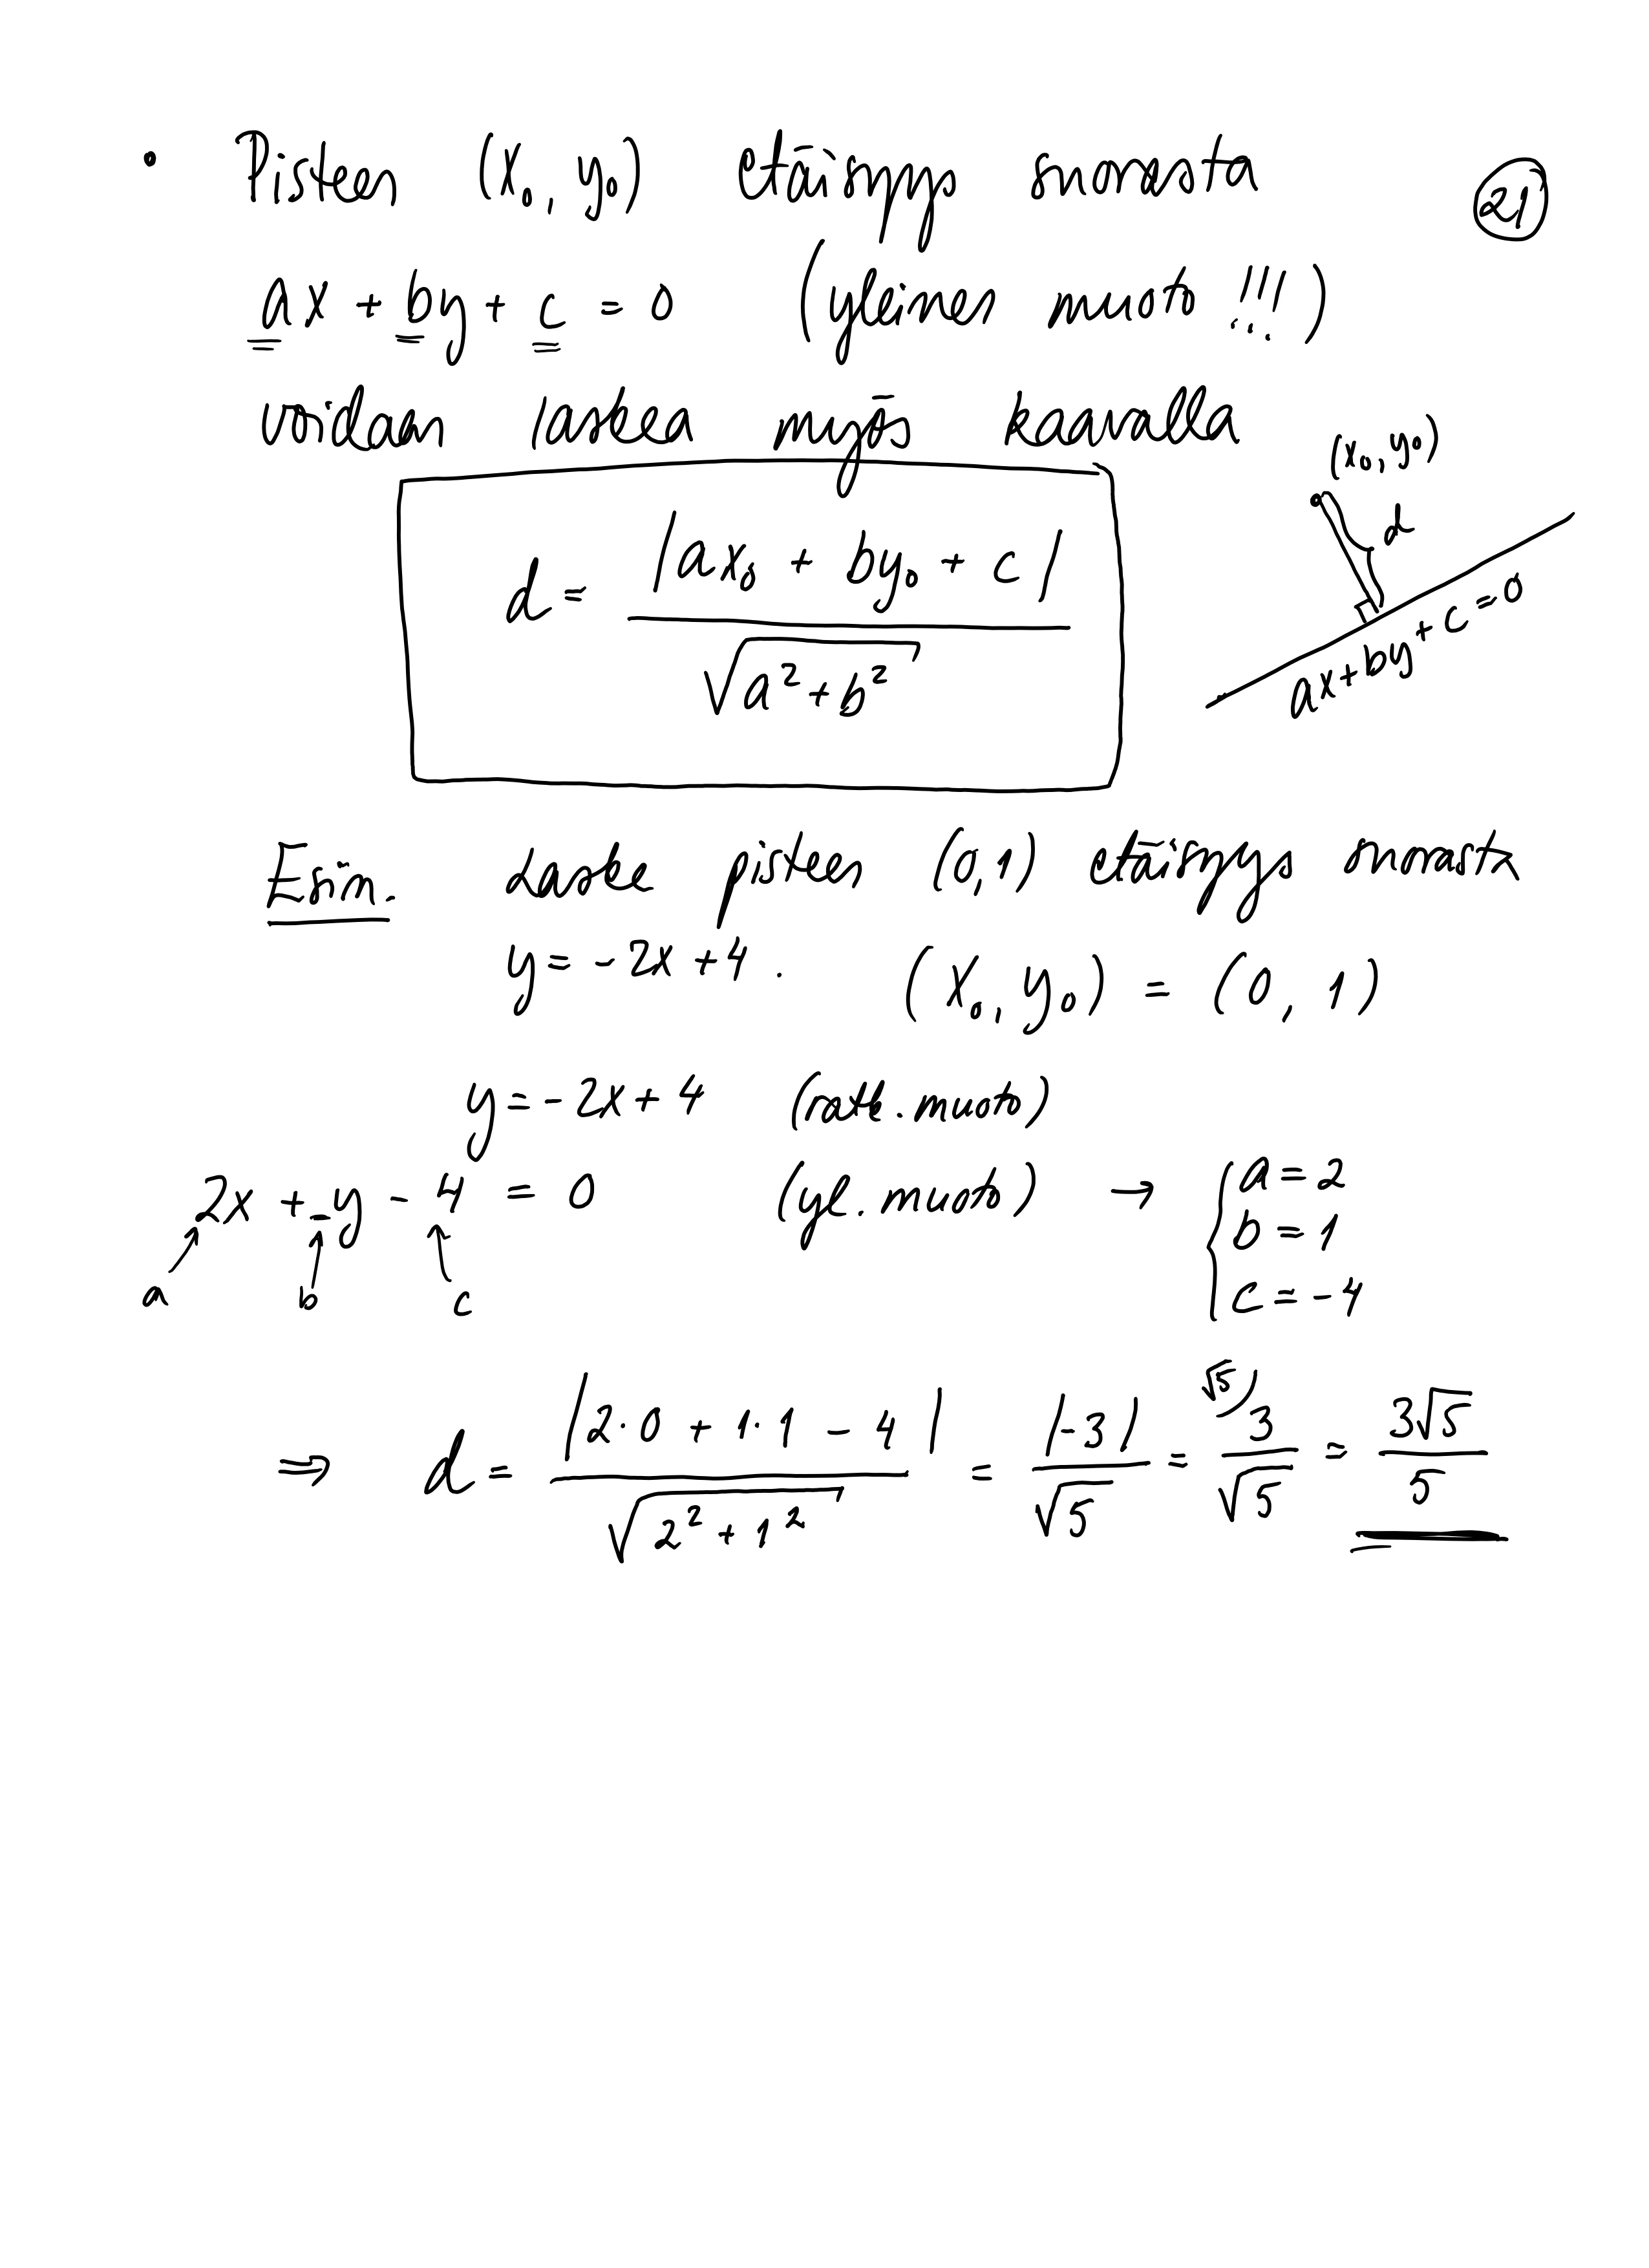 • Pisteen (x₀, y₀) etäisyys suorasta
21
ax + by + c = 0 (yleinen muoto !!!)
voidaan laskea myös kaavalla
(x₀, y₀)
d
ax + by + c = 0
d = |ax₀ + by₀ + c| / √(a² + b²)
Esim. Laske pisteen (0, 1) etäisyys suorasta
y = -2x + 4 . (x₀, y₀) = (0, 1)
y = -2x + 4 (ratk. muoto)
2x + y - 4 = 0 (yl. muoto) → { a = 2
b = 1
c = -4
a b c
⇒ d = |2·0 + 1·1 - 4| / √(2² + 1²) = |-3| / √5 = √5) 3 / √5 = 3√5 / 5